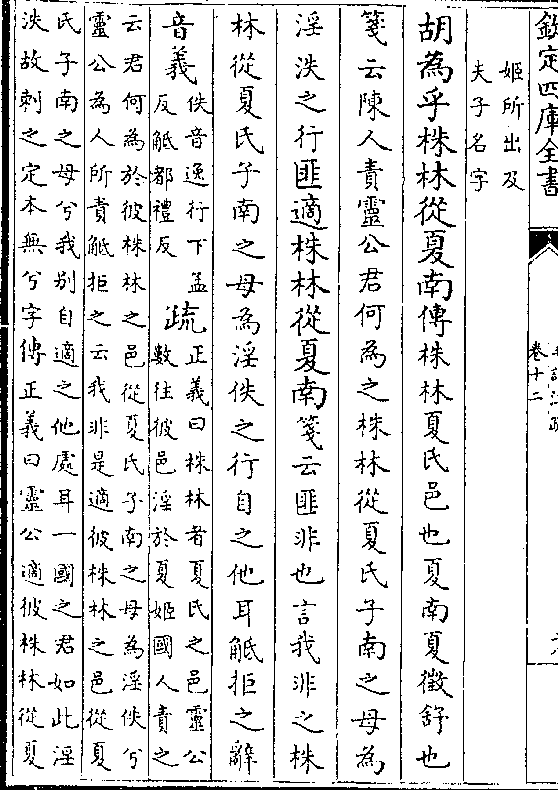 欽定四庫全書
卷十二
姬所出及
夫子名字
胡為乎株林從夏南傳株林夏氏邑也夏南夏徵舒也
箋云陳人責靈公君何為之株林從夏氏子南之母為
淫泆之行匪適株林從夏南箋云匪非也言我非之株
林從夏氏子南之母為淫佚之行自之他耳觝拒之辭
音義
佚音逸行下孟
反觝都禮反
疏
正義曰株林者夏氏之邑靈公
數往彼邑淫於夏姬國人責之
云君何為於彼株林之邑從夏氏子南之母為淫佚兮
靈公為人所責觝拒之云我非是適彼株林之邑從夏
氏子南之母兮我别自適之他處耳一國之君如此淫
泆故刺之定本無兮字傳正義曰靈公適彼株林從夏